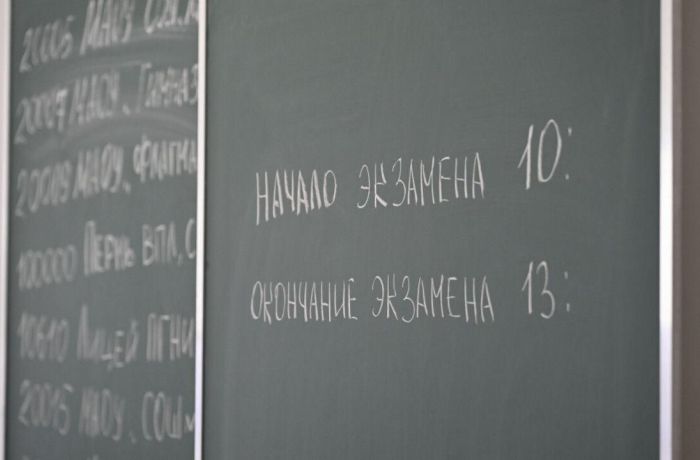 20005 МАОУ СОШ
20007 МАОУ, ГИМНАЗ
20009 МАОУ, ФЛАГМА
100000 ПЕРМЬ ВПЛ, С
10610 ЛИЦЕЙ ПГНИ
20015 МАОУ, СОШ
НАЧАЛО ЭКЗАМЕНА 10:
ОКОНЧАНИЕ ЭКЗАМЕНА 13: